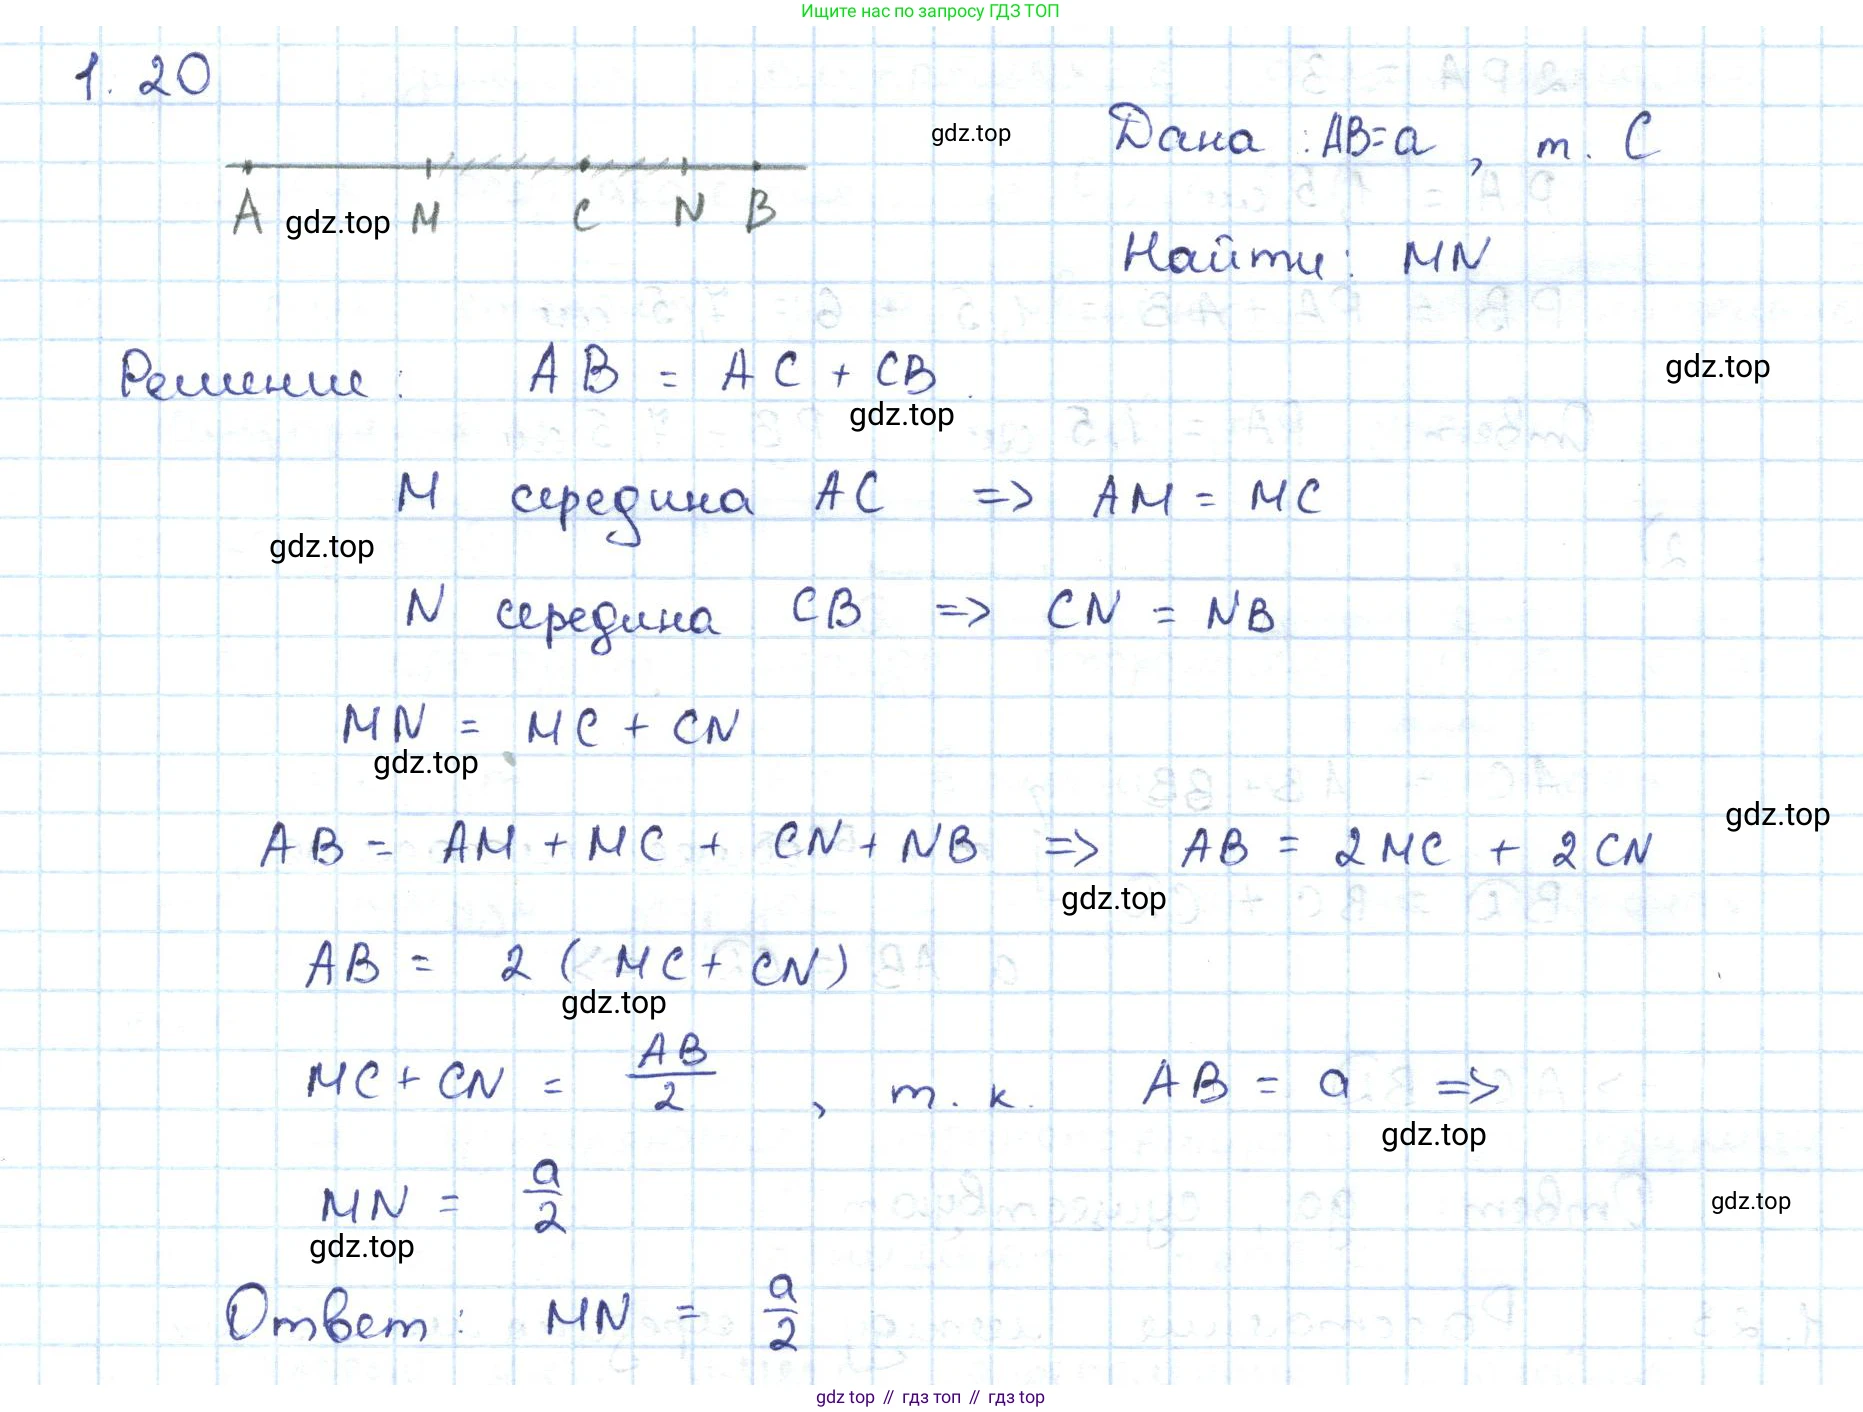 Ищите нас по запросу ГДЗ ТОП
1. 20
gdz.top
Дана : AB=a , т. C
A gdz.top M C N B
Найти: MN
Решение: AB = AC + CB
gdz.top
gdz.top
M середина AC => AM = MC
gdz.top
N середина CB => CN = NB
MN = MC + CN
gdz.top
gdz.top
AB = AM + MC + CN + NB => AB = 2MC + 2CN
gdz.top
AB = 2 ( MC + CN )
gdz.top
MC + CN = AB/2 , т. к. AB = a =>
gdz.top
MN = a/2
gdz.top
gdz.top
Ответ: MN = a/2
gdz top // гдз топ // гдз top